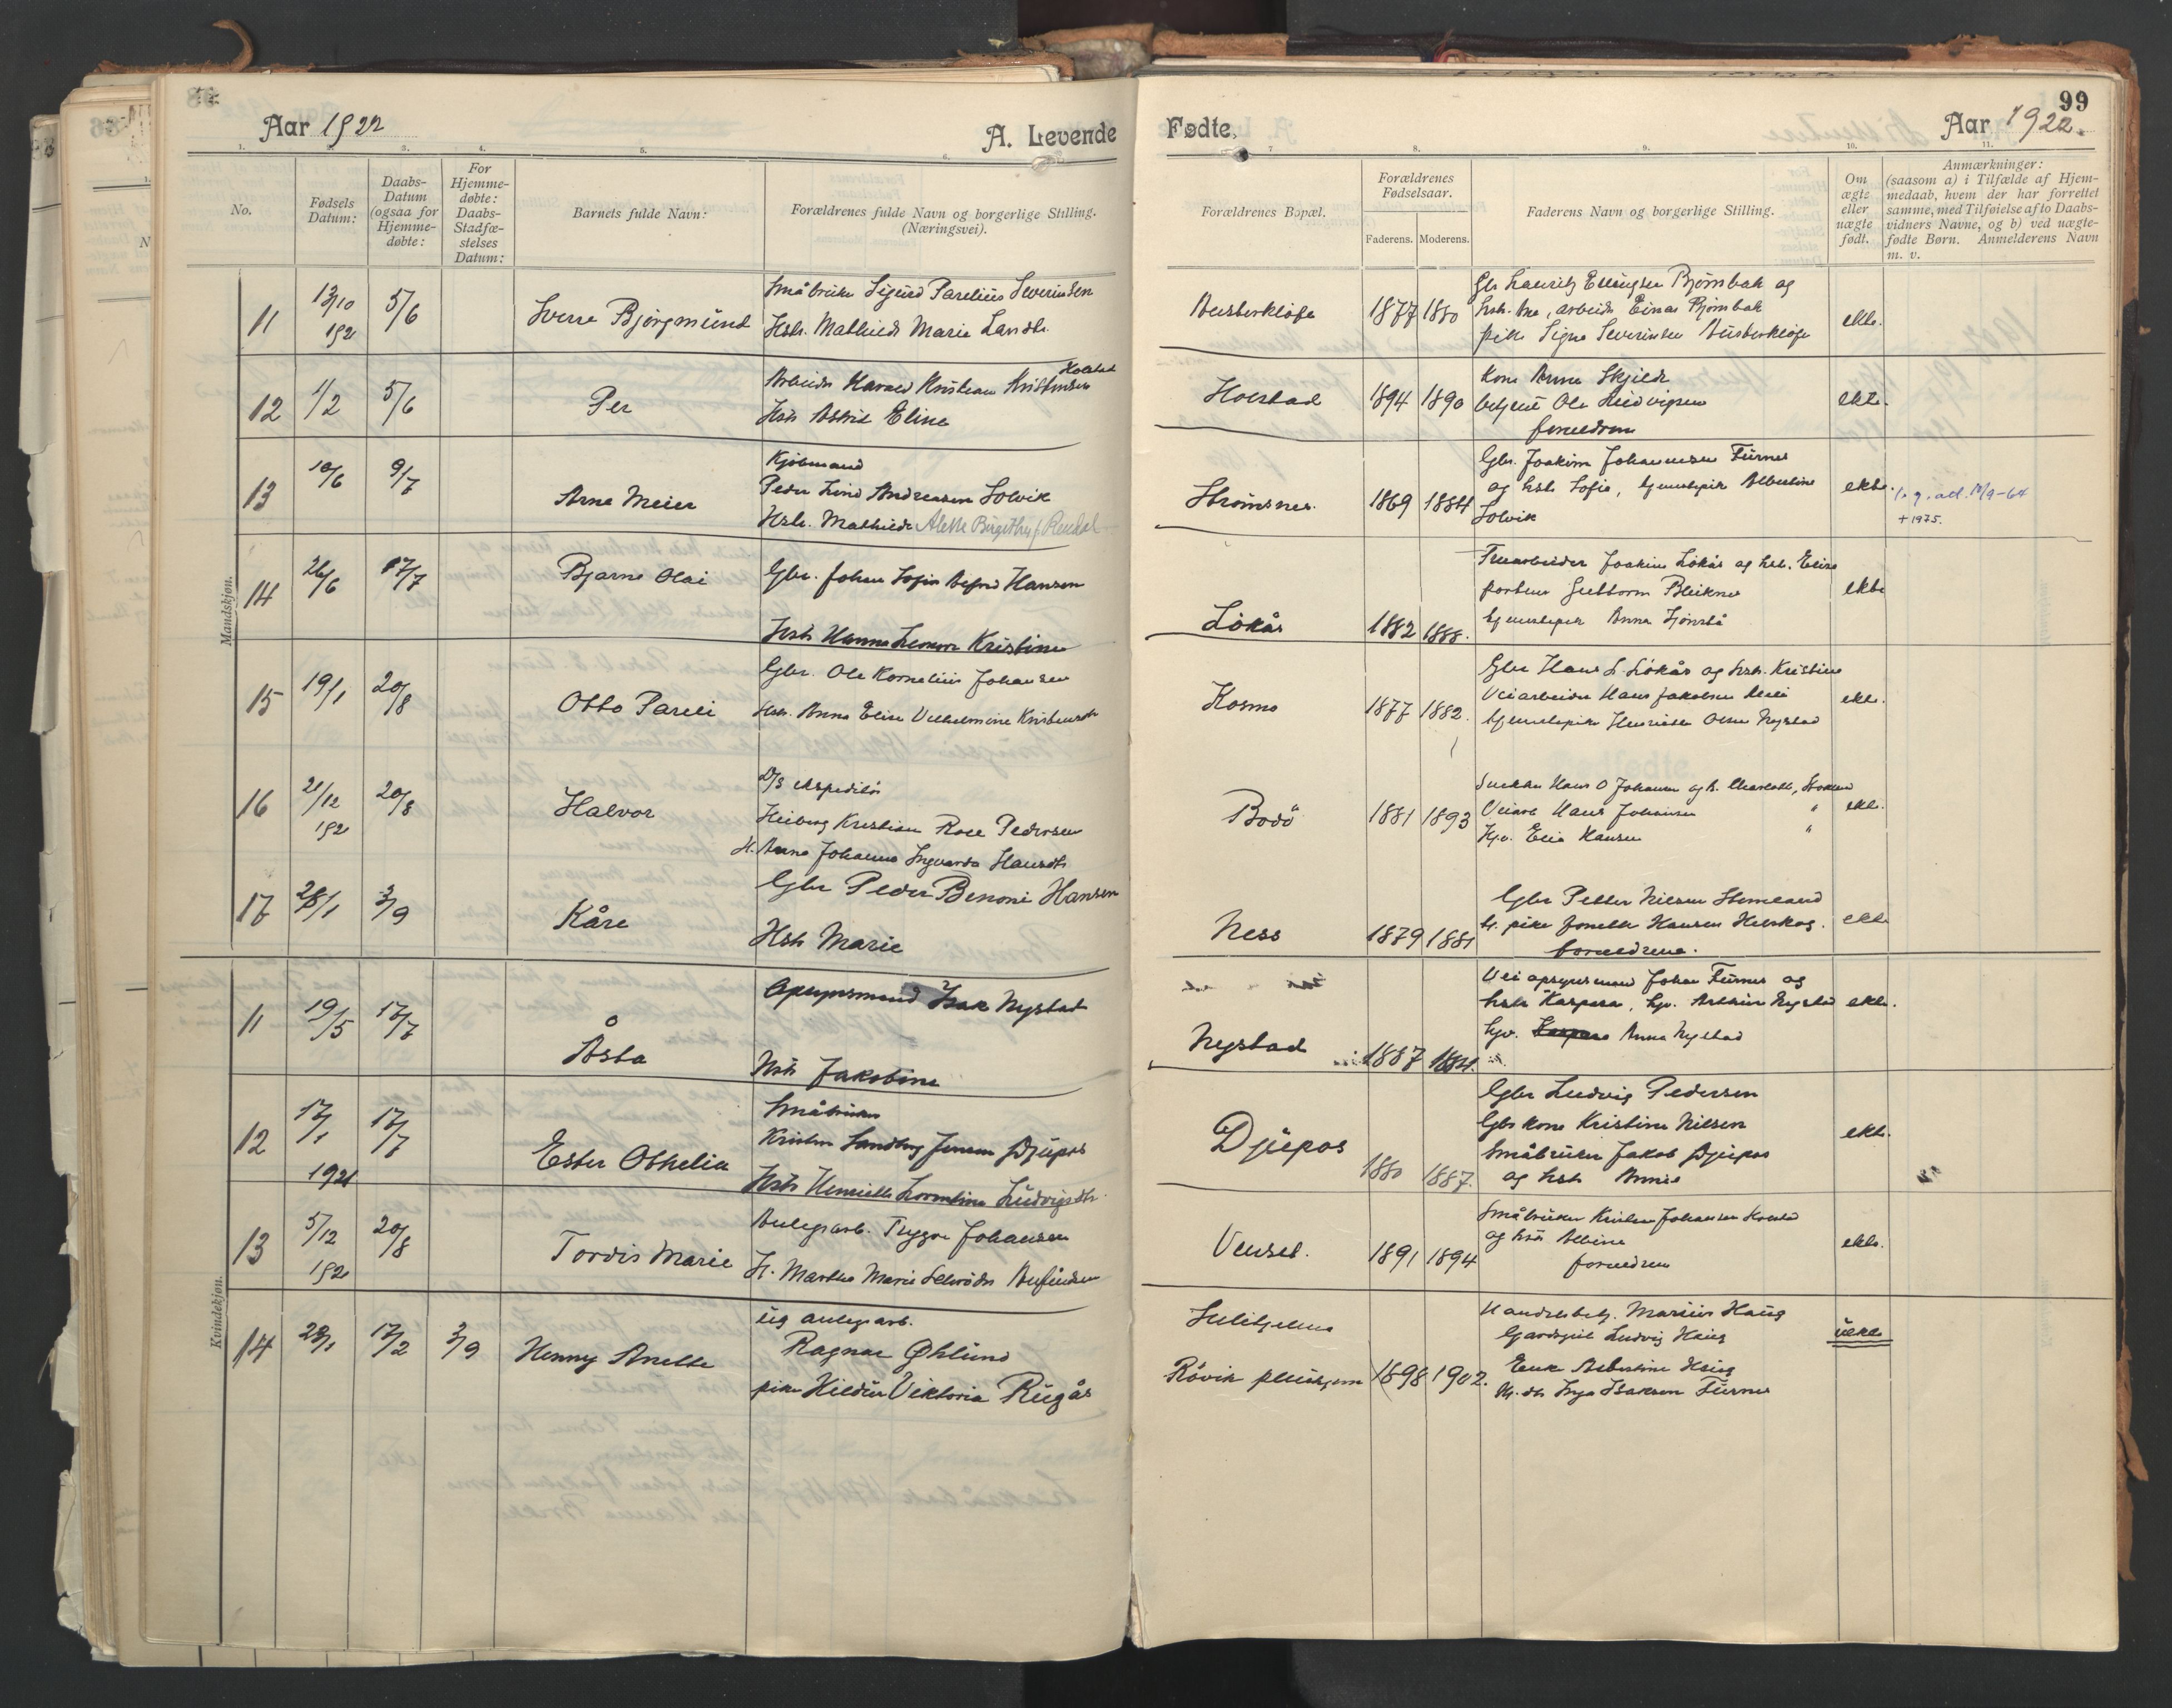 99
Aar 1922
A. Levende
Fødte,
Aar 1922.
1. 2. 3. 4. 5. 6. 7 8. 9. 10. 11.
No.
Fødsels Datum:
Daabs-Datum (ogsaa for Hjemme-døbte:
For Hjemme-døbte: Daabs-Stadfæ-stelses Datum:
Barnets fulde Navn:
Forældrenes fulde Navn og borgerlige Stilling. (Næringsvei).
Forældrenes Bopæl.
Forældrenes Fødselsaar.
Faderens. Moderens.
Faderens Navn og borgerlige Stilling.
Om ægte eller uægte født.
Anmærkninger:
(saasom a) i Tilfælde af Hjem-
medaab, hvem der har forrettet
samme, med Tilføielse af to Daabs-
vidners Navne, og b) ved uægte-
fødte Børn. Anmelderens Navn
m. v.
Mandskjøn.
11 13/10 192 5/6 Sverre Bjørgmund
Småbruker Sigurd Parelius Severinsen
Hstr. Mathilde Marie Larsdtr.
Austerkløfa 1877 1880
Gbr Lauritz Ellingsen Bjørnbak og
hstr. , arbeider Einar Bjørnbak
pike Signe Severinsen Austerkløfa
ekte.
12 1/2 5/6 Per
Arbeider Harald Kristian Kristensen Holstad
Hstr Astrid Eline
Holstad 1894 1890
Kone Anna Skjelde
betjent Ole Ludvigsen
foreldrene
ekte.
13 10/6 9/7 Arne Meier
Kjøbmand
Peder Lind Andreassen Solvik
Hstr. Mathilde Alette Birgithe f. Rendal
Strømsnes. 1869 1884
Gbr. Joakim Johannesen Furnes
og hstr Sofie, tjenestepike Albertine
Solvik
ekte.
+ 1975.
14 26/6 17/7 Bjarne Olai
Gbr. Johan Hansen
Hstr Hanna Leonore Kristine
Løkås 1882 1888.
Joakim Løkås og hstr. Elise
Guttorm Bleiknes
tjenestepike Anna
ekte
15 19/1 20/8 Otto Pareli
Gbr. Ole Kornelius Johansen
Hstr. Anna Elise Vilhelmine Kristensdtr
Kosmo 1877 1882.
Gbr Hans L. Løkås og hstr. Kristine
Veiarbeider Hans Jakobsen
tjenestepike Henriette Olsen Nystad
ekte.
16 21/12 192 20/8 Halvor
D/S ekspeditør
Heiberg Kristian Rose Pedersen
H. Anna Johanna Ingvarda Hansdtr
Bodø 1881 1893
Hans O Johansen og h.
Veiarb Hans Johansen "
Hjv. Elia Hansen "
ekte.
17 28/1 3/9 Kåre
Gbr Peder Benoni Hansen
Hstr Marie
Ness 1879 1881
Gbr Petter Nilsen
t. pike Jonette Hansen
foreldrene.
ekte
Kvindekjøn.
11 19/5 17/7 Åsta
Opsynsmand Isak Nystad
Hstr Jakobine
Nystad 1887 1884.
Vei opsynsmand Johan Furnes og
hstr Kaspara, hjv. Nystad
hjv. Anna Nystad
ekte.
12 17/1 1921 17/7 Ester Othelia
Småbruker
Kristen Sandberg Jensen Djupos
Hstr Henriette Lorentine Ludvigsdtr.
Djupos 1880 1887.
Gbr Ludvig Pedersen
Gbr kone Kristine Nilsen
Småbruker Jakob Djupos
og hstr Annie
ekte.
13 5/12 192 20/8 Tordis Marie
Anlegsarb. Trygve Johansen
H. Martha Marie
Venset. 1891 1894
Småbruker Kristen Johansen
og hstr Albine
foreldrene
ekte.
14 28/1 17/2 3/9 Henny Anette
ug anlegsarb.
Ragnar Øhlund
pike Hildur Viktoria Rugås
Sulitjelma
Røvik pleiehjem 1898 1902.
Handelsbetj. Marius Haug
Gardsgut Ludvig Haug
Enke Albertine Haug
Inga Isaksen Furnes
uekte